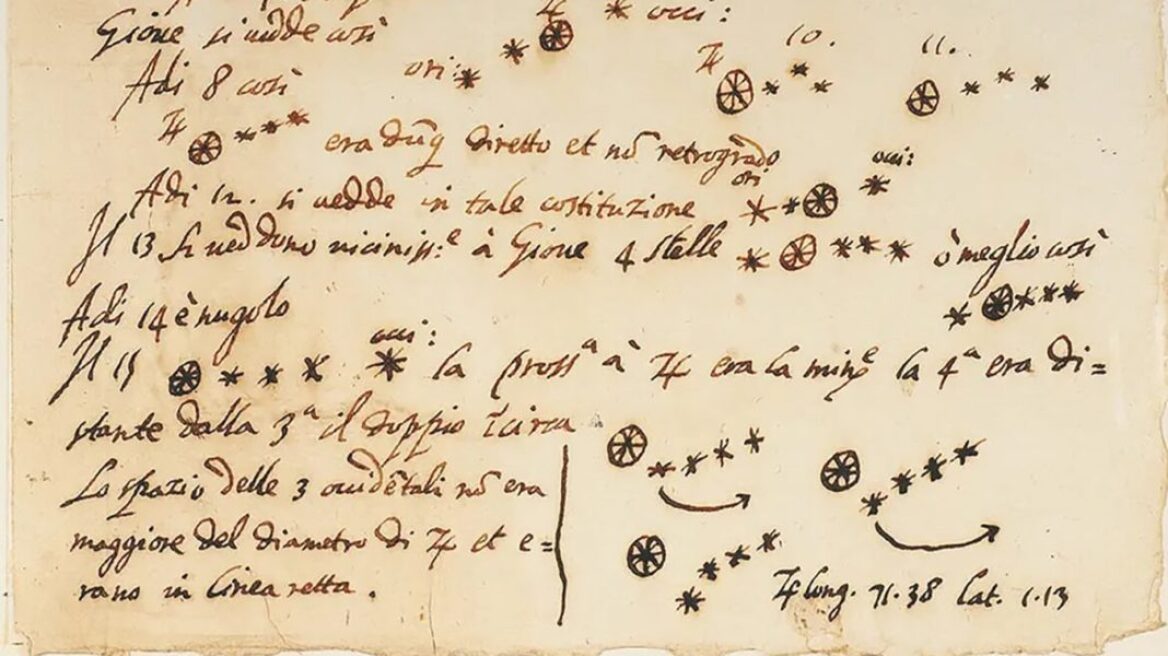 ♃ occi:
Gioue si uedde così
ori: ♃ 10. 11.
Adi 8 così
♃ era dūq diretto et nō retrogrado
Adi 12. si uedde in tale costituzione ori occi:
Il 13 si ueddono uiciniss:ᵉ à Gioue 4 stelle ò meglio così
Adi 14 è nugolo
Il 15 occi: la prossᵃ à ♃ era la minᵉ la 4ᵃ era di=
stante dalla 3ᵃ il doppio īcirca
Lo spazio delle 3 occidētali nō era
maggiore del diametro di ♃ et e=
rano in linea retta.
♃ long. 71.38 lat. 1.13